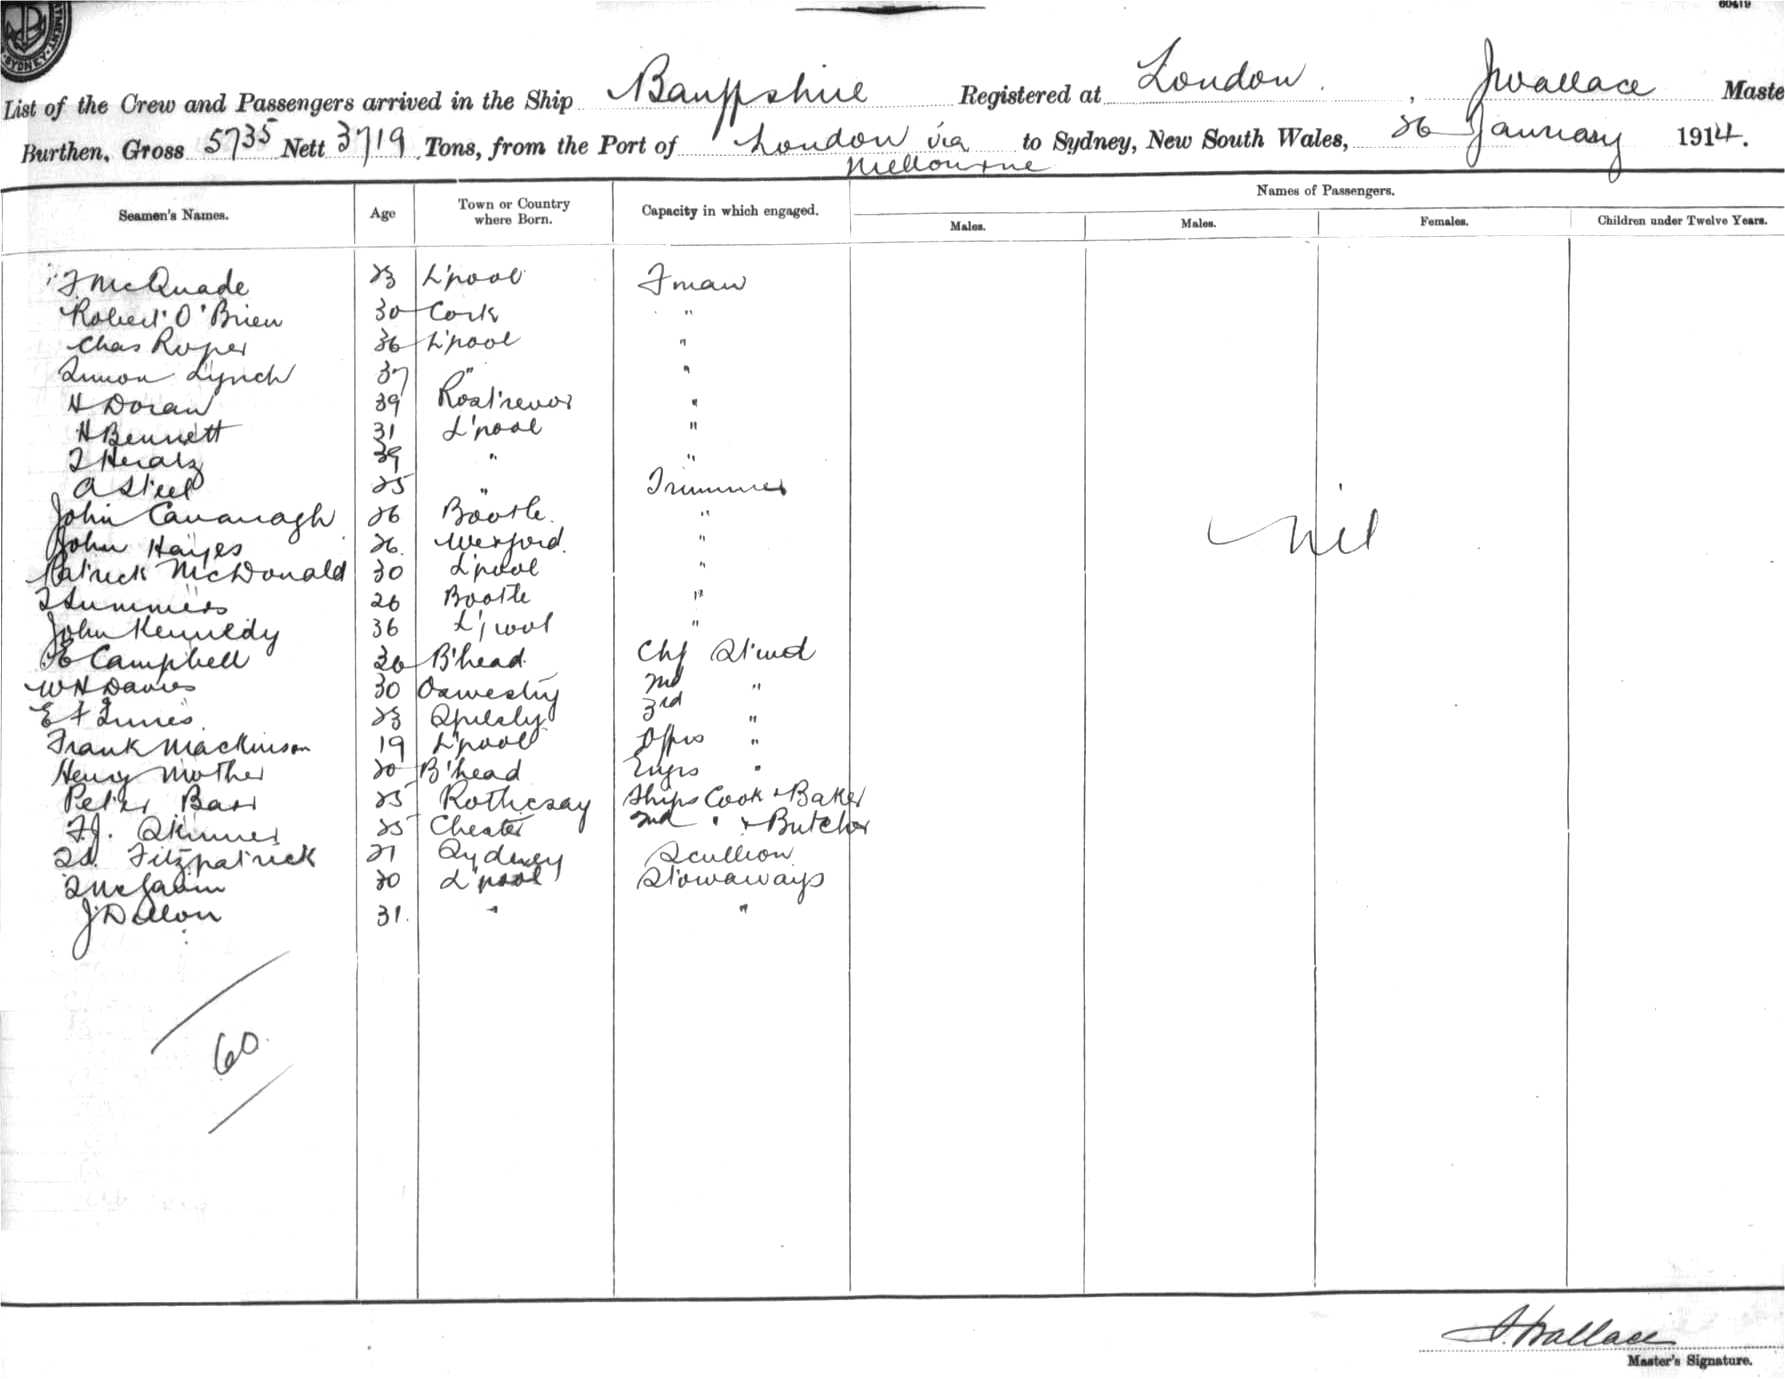 60419
SYDNEY
List of the Crew and Passengers arrived in the Ship Banffshire Registered at London. , J Wallace Maste
Burthen, Gross 5735 Nett 3719 Tons, from the Port of London via Melbourne to Sydney, New South Wales, 26 January 1914.
Seamen's Names. Age Town or Country where Born. Capacity in which engaged. Names of Passengers.
Males. Males. Females. Children under Twelve Years.
McQuade 23 L'pool Fman
Robert O'Brien 30 Cork "
Chas Roper 36 L'pool "
Simon Lynch 37 " "
H Doran 39 Rostrevor "
H Bennett 31 L'pool "
39 " "
A Steel 25 " Trimmer
John Cavanagh 26 Bootle "
John Hayes 26. Wexford. "
Patrick McDonald 30 L'pool "
Summers 26 Bootle "
John Kennedy 36 L'pool "
Campbell B'head Chf Stwd
W H Davies 30 Oswestry 2nd "
E F Innes 23 Spilsby 3rd "
Frank Mackinson 19 L'pool Offrs "
Henry Mother 20 B'head Engrs "
Peter Barr 25 Rothesay Ships Cook & Baker
Skinner 25 Chester 2nd " & Butcher
Fitzpatrick 21 Sydney Scullion
20 L'pool Stowaways
J Dillon 31. " "
Nil
60.
J. Wallace
Master's Signature.